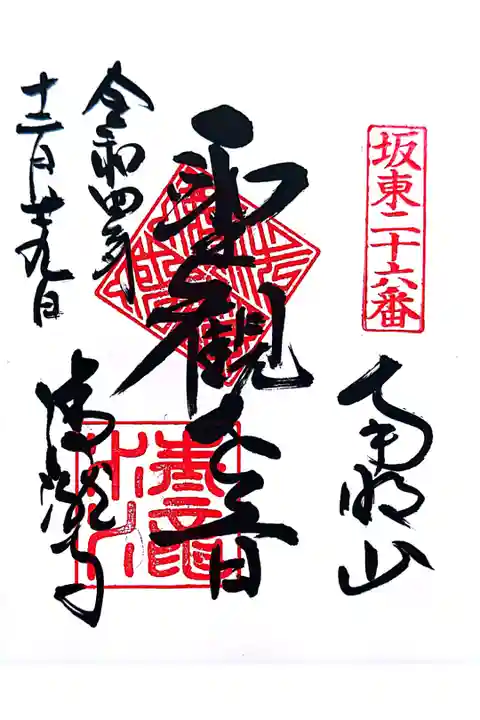 坂東二十六番
南明山
聖觀世音
令和四年
十二月廿九日
清瀧寺